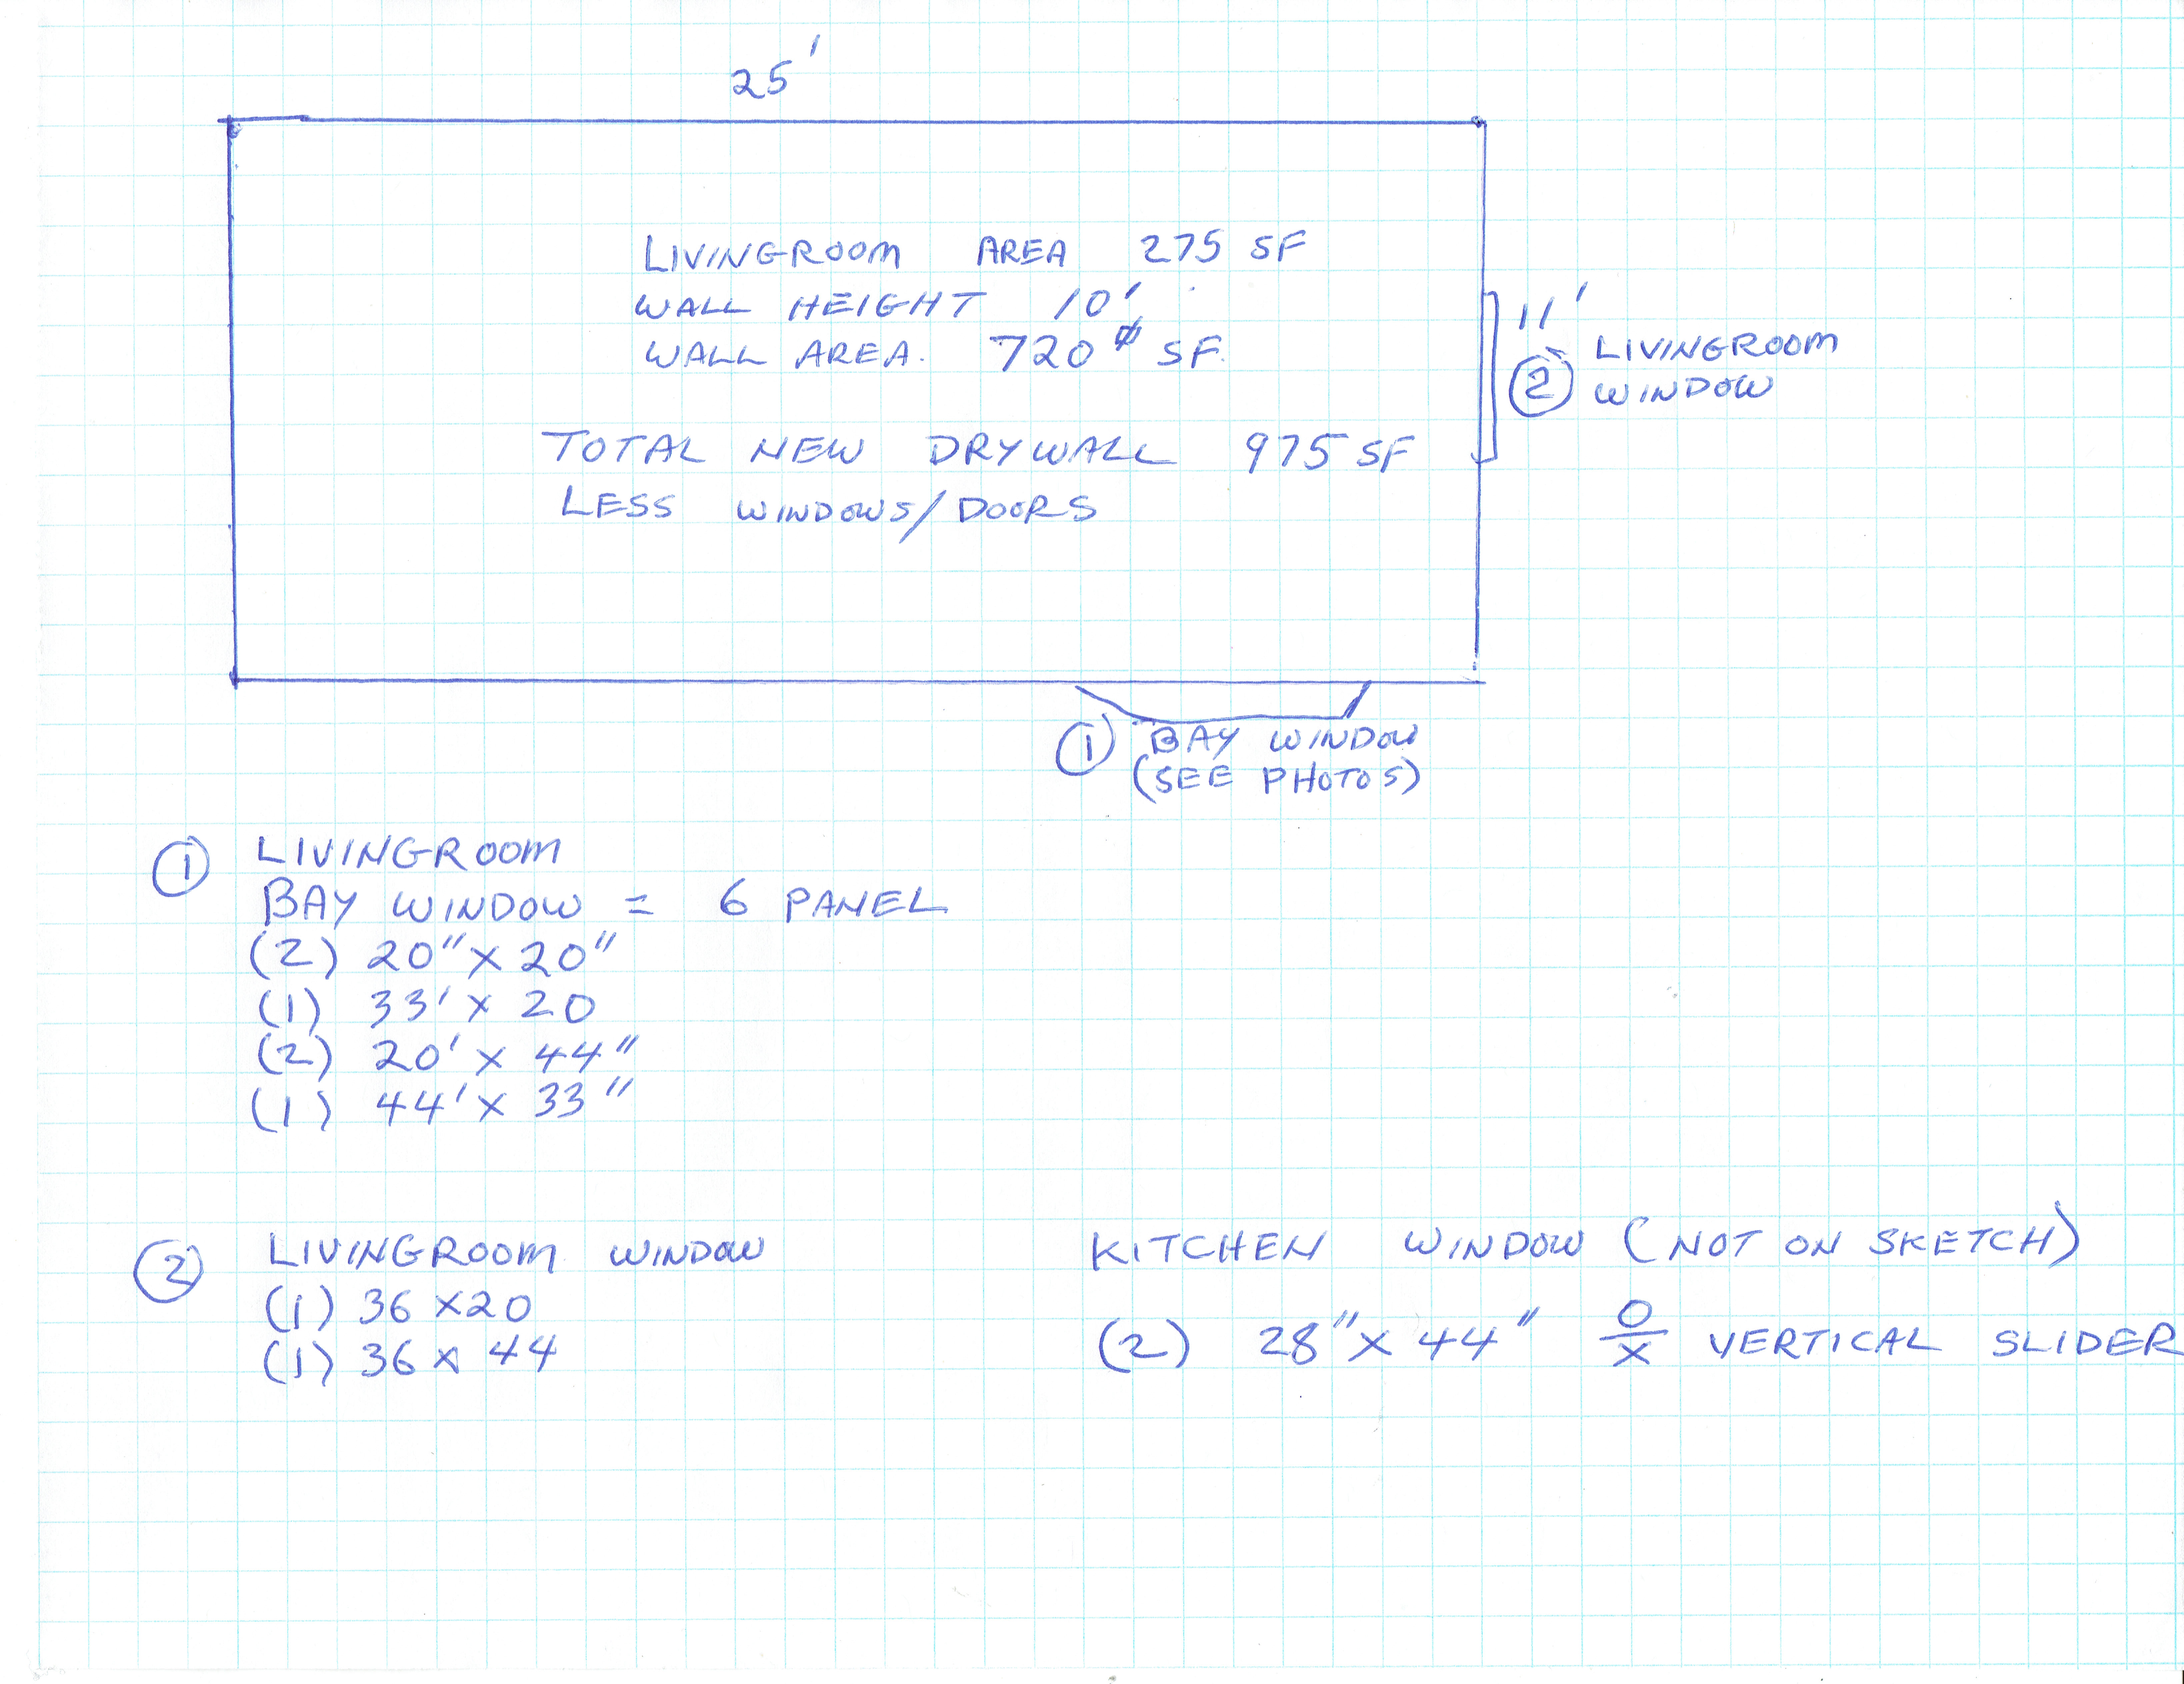 25'
LIVINGROOM AREA 275 SF
WALL HEIGHT 10'
WALL AREA. 720 SF.
11'
② LIVINGROOM
WINDOW
TOTAL NEW DRYWALL 975 SF
LESS WINDOWS/DOORS
① BAY WINDOW
(SEE PHOTOS)
① LIVINGROOM
BAY WINDOW = 6 PANEL
(2) 20" X 20"
(1) 33' X 20
(2) 20' X 44"
(1) 44' X 33"
② LIVINGROOM WINDOW
(1) 36 X 20
(1) 36 X 44
KITCHEN WINDOW (NOT ON SKETCH)
(2) 28" X 44" O/X VERTICAL SLIDER